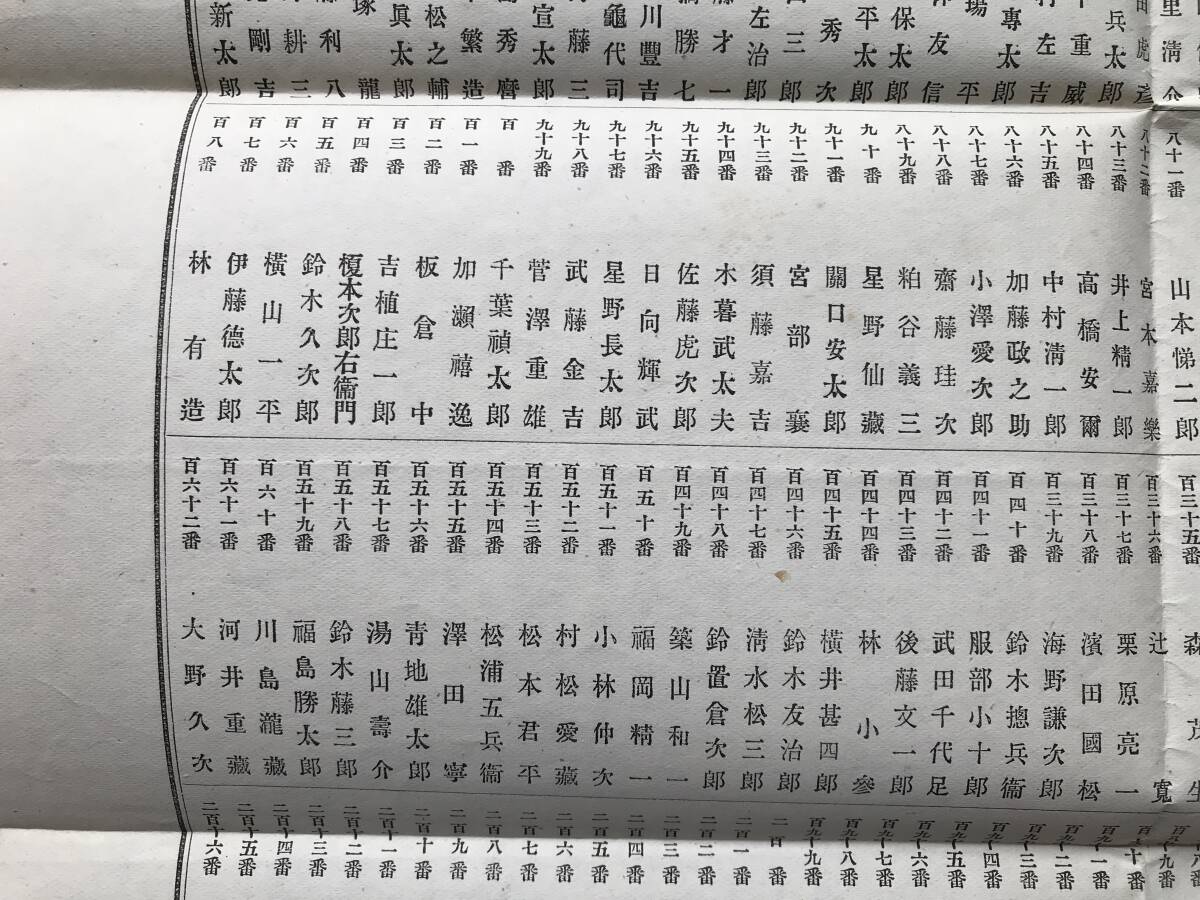 里淸介
虎彥
兵太郎
重威
村左吉
專太郎
場平
津友信
保太郎
平太郎
秀次
三郎
左治郎
藤才一
勝七
川豐吉
龜代司
藤三
宣太郎
秀麿
繁造
松之輔
眞太郎
塚龍
利八
耕三
剛吉
新太郎
八十一番 山本悌二郎
八十二番 宮本嘉樂
八十三番 井上精一郎
八十四番 高橋安爾
八十五番 中村淸一郎
八十六番 加藤政之助
八十七番 小澤愛次郎
八十八番 齋藤珪次
八十九番 粕谷義三
九十番 星野仙藏
九十一番 關口安太郎
九十二番 宮部襄
九十三番 須藤嘉吉
九十四番 木暮武太夫
九十五番 佐藤虎次郎
九十六番 日向輝武
九十七番 星野長太郎
九十八番 武藤金吉
九十九番 菅澤重雄
百番 千葉禎太郎
百一番 加瀨禧逸
百二番 板倉中
百三番 吉植庄一郎
百四番 榎本次郎右衞門
百五番 鈴木久次郎
百六番 橫山一平
百七番 伊藤德太郎
百八番 林有造
百三十五番 森茂生
百三十六番 辻寬
百三十七番 栗原亮一
百三十八番 濱田國松
百三十九番 海野謙次郎
百四十番 鈴木摠兵衞
百四十一番 服部小十郎
百四十二番 武田千代足
百四十三番 後藤文一郎
百四十四番 林小參
百四十五番 橫井甚四郎
百四十六番 鈴木友治郎
百四十七番 淸水松三郎
百四十八番 鈴置倉次郎
百四十九番 築山和一
百五十番 福岡精一
百五十一番 小林仲次
百五十二番 村松愛藏
百五十三番 松本君平
百五十四番 松浦五兵衞
百五十五番 澤田寧
百五十六番 靑地雄太郎
百五十七番 湯山壽介
百五十八番 鈴木藤三郎
百五十九番 福島勝太郎
百六十番 川島瀧藏
百六十一番 河井重藏
百六十二番 大野久次
百九十番
百九十一番
百九十二番
百九十三番
百九十四番
百九十五番
百九十六番
百九十七番
百九十八番
百九十九番
二百番
二百一番
二百二番
二百三番
二百四番
二百五番
二百六番
二百七番
二百八番
二百九番
二百十番
二百十一番
二百十二番
二百十三番
二百十四番
二百十五番
二百十六番